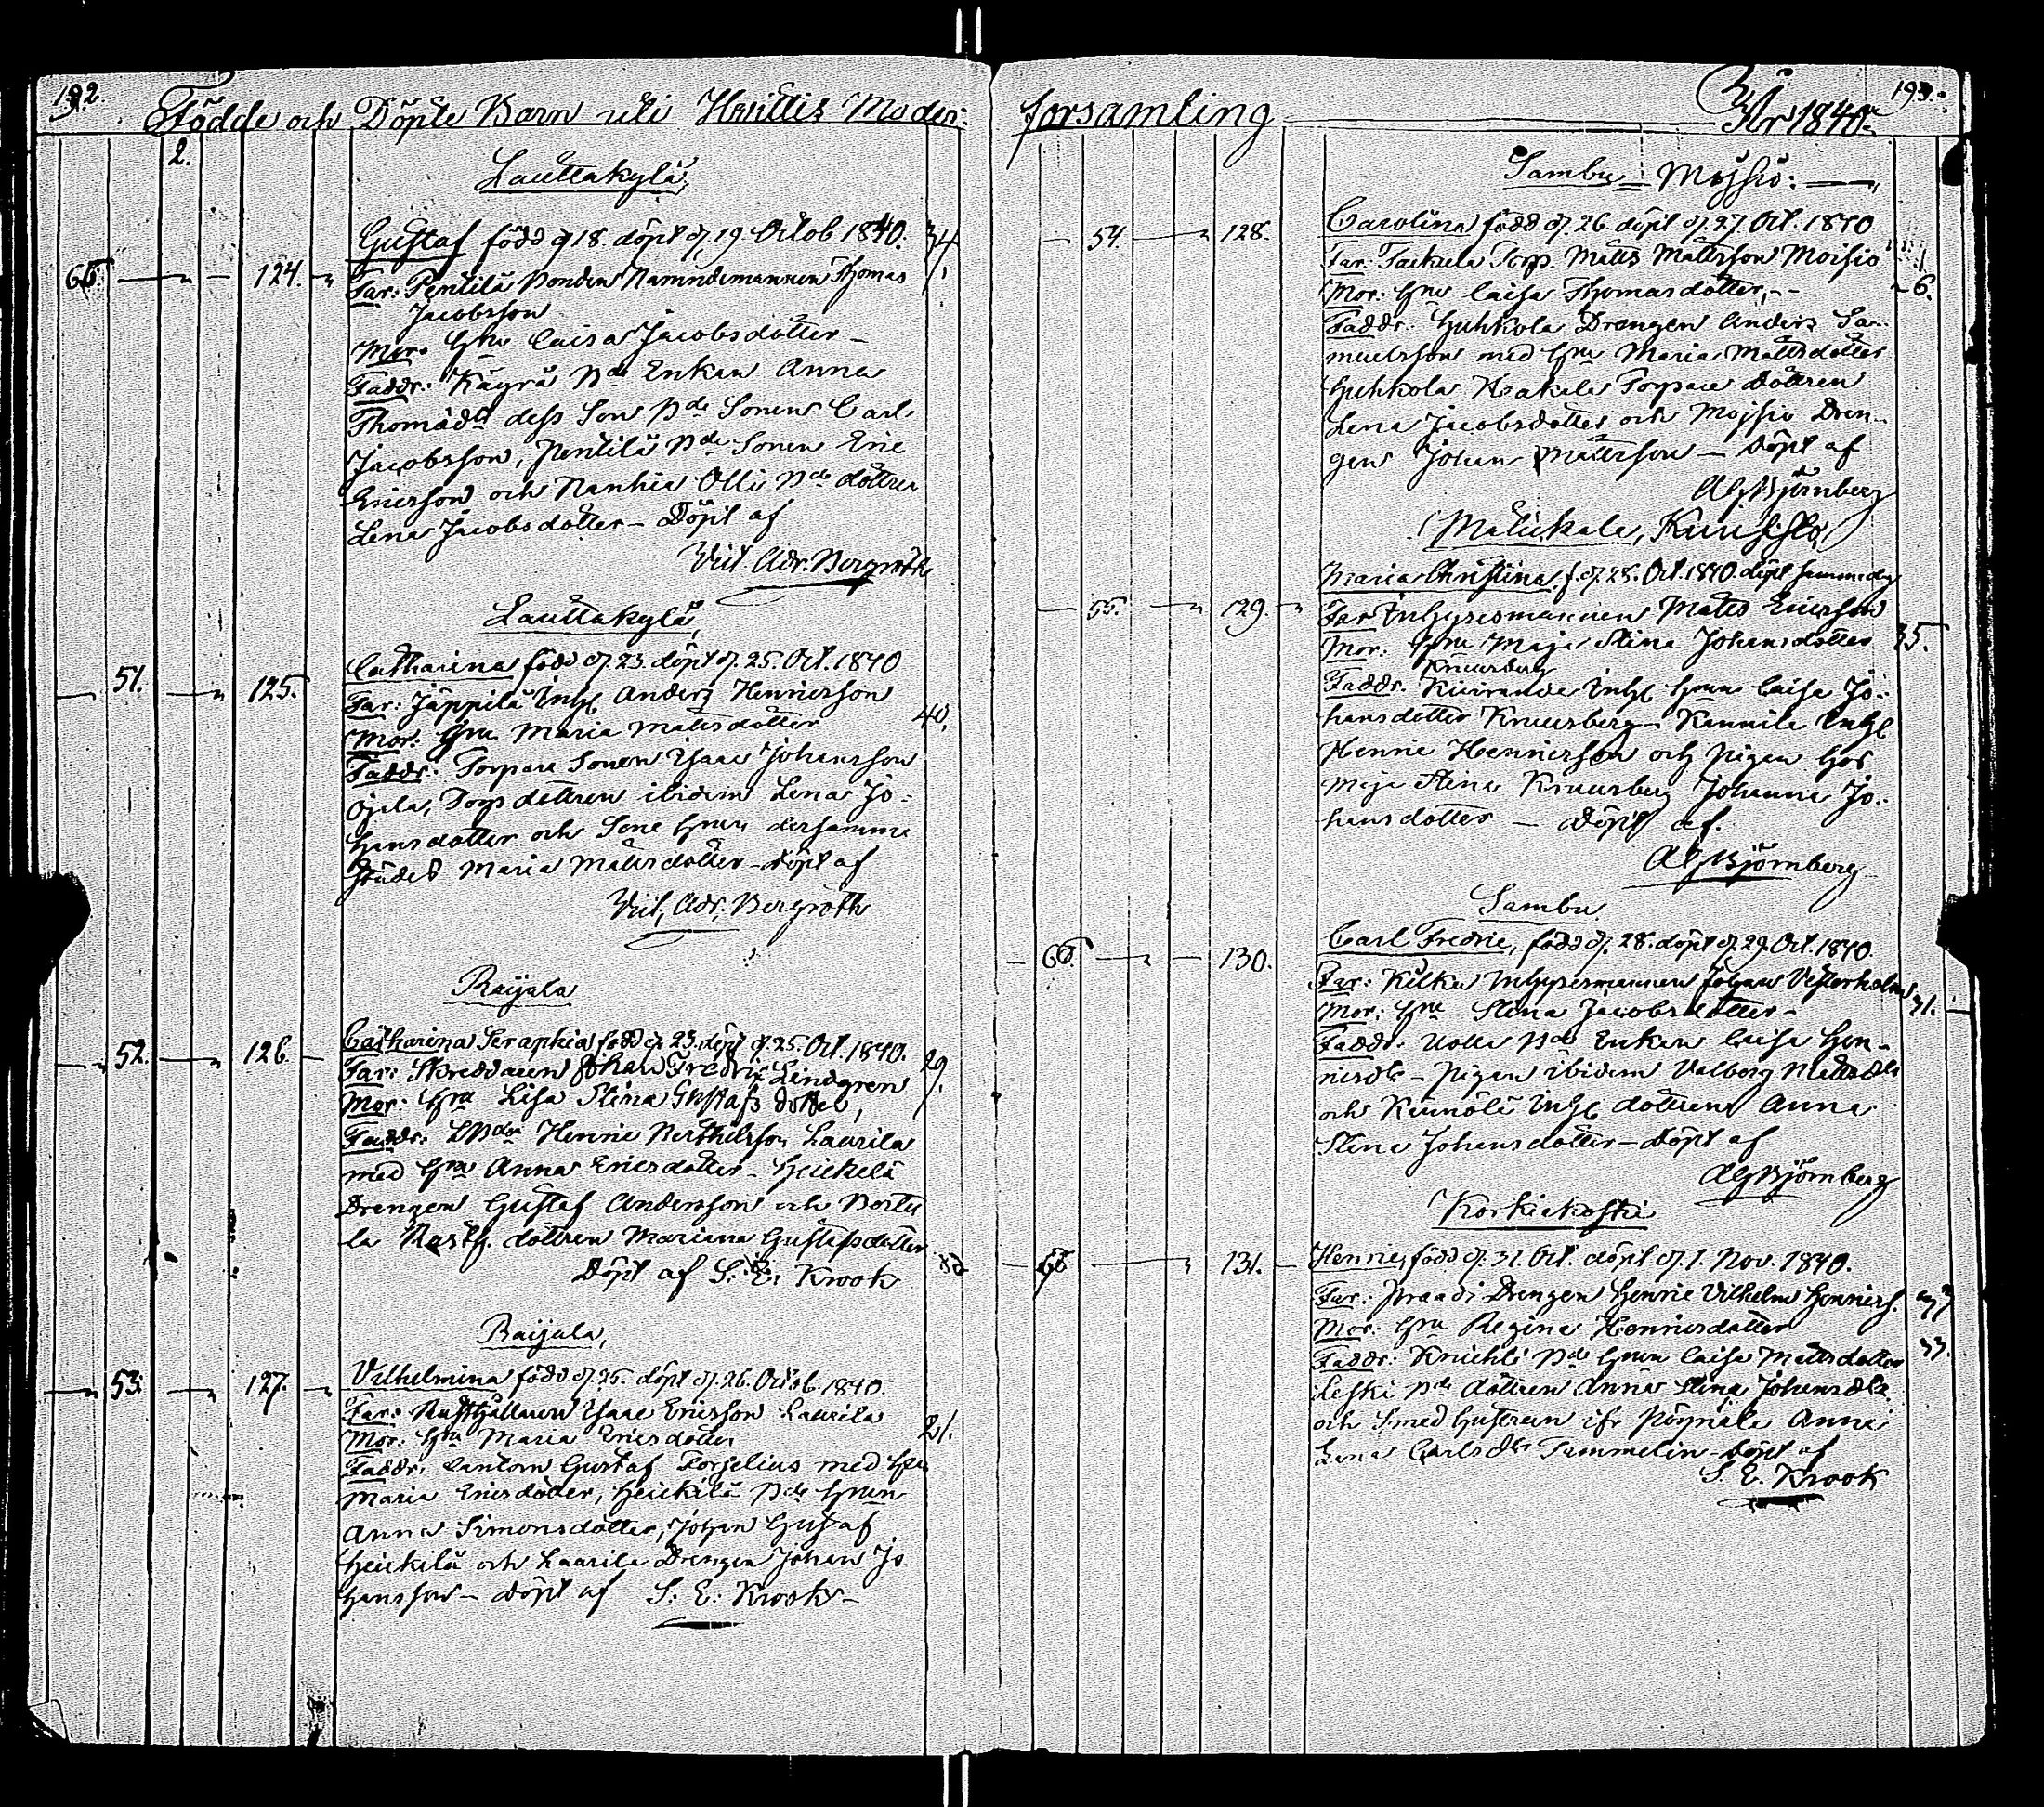 192.
Födde och Döpte Barn uti Hvittis Moder:
2.
Lauttakylä,
Gustaf född d. 18. döpt d. 19. Octob 1840. 34.
124.
Far: Pentilä Bonden Nämndemannen Thomas
Jacobsson
Mor: Hru Caisa Jacobsdotter –
Faddr: Käyrä Bde Enkan Anna
Thomädtr dess Son Bde Sonen Carl
Jacobsson, Pentilä Bde Sonen Eric
Ericsson och Nanhia Olli Bde dottren
Lena Jacobsdotter – Döpt af
Vict. Adr. Bergroth
Lauttakylä,
Catharina född d. 23. döpt d. 25. Oct. 1840
51. 125.
Far: Jäppilä Inh. Anders Henricsson
40.
Mor: Hru Maria Mattsdotter
Faddr: Torpare Sonen Isaac Johansson
Ojela, Torp dottren ibidem Lena Jo-
hansdotter och Sone Hrun dersamma
städes Maria Mattsdotter – döpt af
Vict. Adr. Bergroth
Raijala
Catharina Seraphia född d. 23. döpt d. 25. Oct. 1840. 29.
52. 126.
Far: Skreddaren Johan Fredric Lindgren
Mor: Hru Lisa Stina Gustafs dotter,
Faddr: Henric Berthelsson Laurila
med Hru Anna Ericsdotter – Heickelä
Drengen Gustaf Andersson och Bortu
la Rusth. dottren Mariana Gustafsdotter
Döpt af S. E. Krook
Raijala,
Vilhelmina född d. 25. döpt d. 26. Octob. 1840.
53. 127.
Far: Rusthållaren Isaac Ericsson Laurila
21.
Mor: Hru Maria Ericsdotter
Faddr: Cantorn Gustaf Forselius med Hru
Maria Ericsdotter, Heickilä Bde Hrun
Anna Simonsdotter, Johan Gustaf
Heickilä och Laurila Drengen Johan Jo
hansson – döpt af S. E. Krook –
193.
forsamling År 1840.
Sambu = Mojsio:
Carolina född d. 26. döpt d. 27. Oct. 1840
54. 128.
Far: Torp. Matts Mattsson Moisio
6.
Mor: Hru Caisa Thomasdotter, –
Faddr: Huhkola Drengen Anders Sa-
muelsson med Hru Maria Mattsdotter
Huhkola Torpare dottren
Lena Jacobsdotter och Mojsio Dren-
gen Johan Mattsson – Döpt af
Alf Björnberg
Maria Christina, f. d. 28. Oct. 1840. döpt samma dag
55. 129.
Far Inhysesmannen Matts Ericsson
35.
Mor: Hru Maja Stina Johansdotter
Knursberg
Faddr: Inh. Hrun Caisa Jo-
hansdotter Knursberg – Kannila Inh.
Henric Henricsson och pigan hos
Maja Stina Knursberg Johanna Jo-
hansdotter – Döpt af.
Alf Björnberg
Sambu
Carl Fredric, född d. 28. döpt d. 29. Oct. 1840.
130.
Far: Inhysesmannen Johan Vesterholm
31.
Mor: Hru Stina Jacobsdotter –
Faddr: Uotta Bde Enkan Caisa Hen-
ricsdtr – Pigan ibidem Valborg Mattsdtr
och Inh. dottren Anna
Stina Johansdotter – Döpt af
Alf Björnberg
Korkiakoski
Henric, född d. 31. Oct. döpt d. 1. Nov. 1840.
131.
Far: Praadi Drengen Henric Vilhelm Henrics.
Mor: Hru Regina Henricsdotter
33.
Faddr: Knichti Bde Hrun Caisa Mattsdotter
Leski Bde dottren Anna Stina Johansdtr
och Smed hustrun ifr Anna
Lena Carlsdtr Tammelin – Döpt af
S. E. Krook